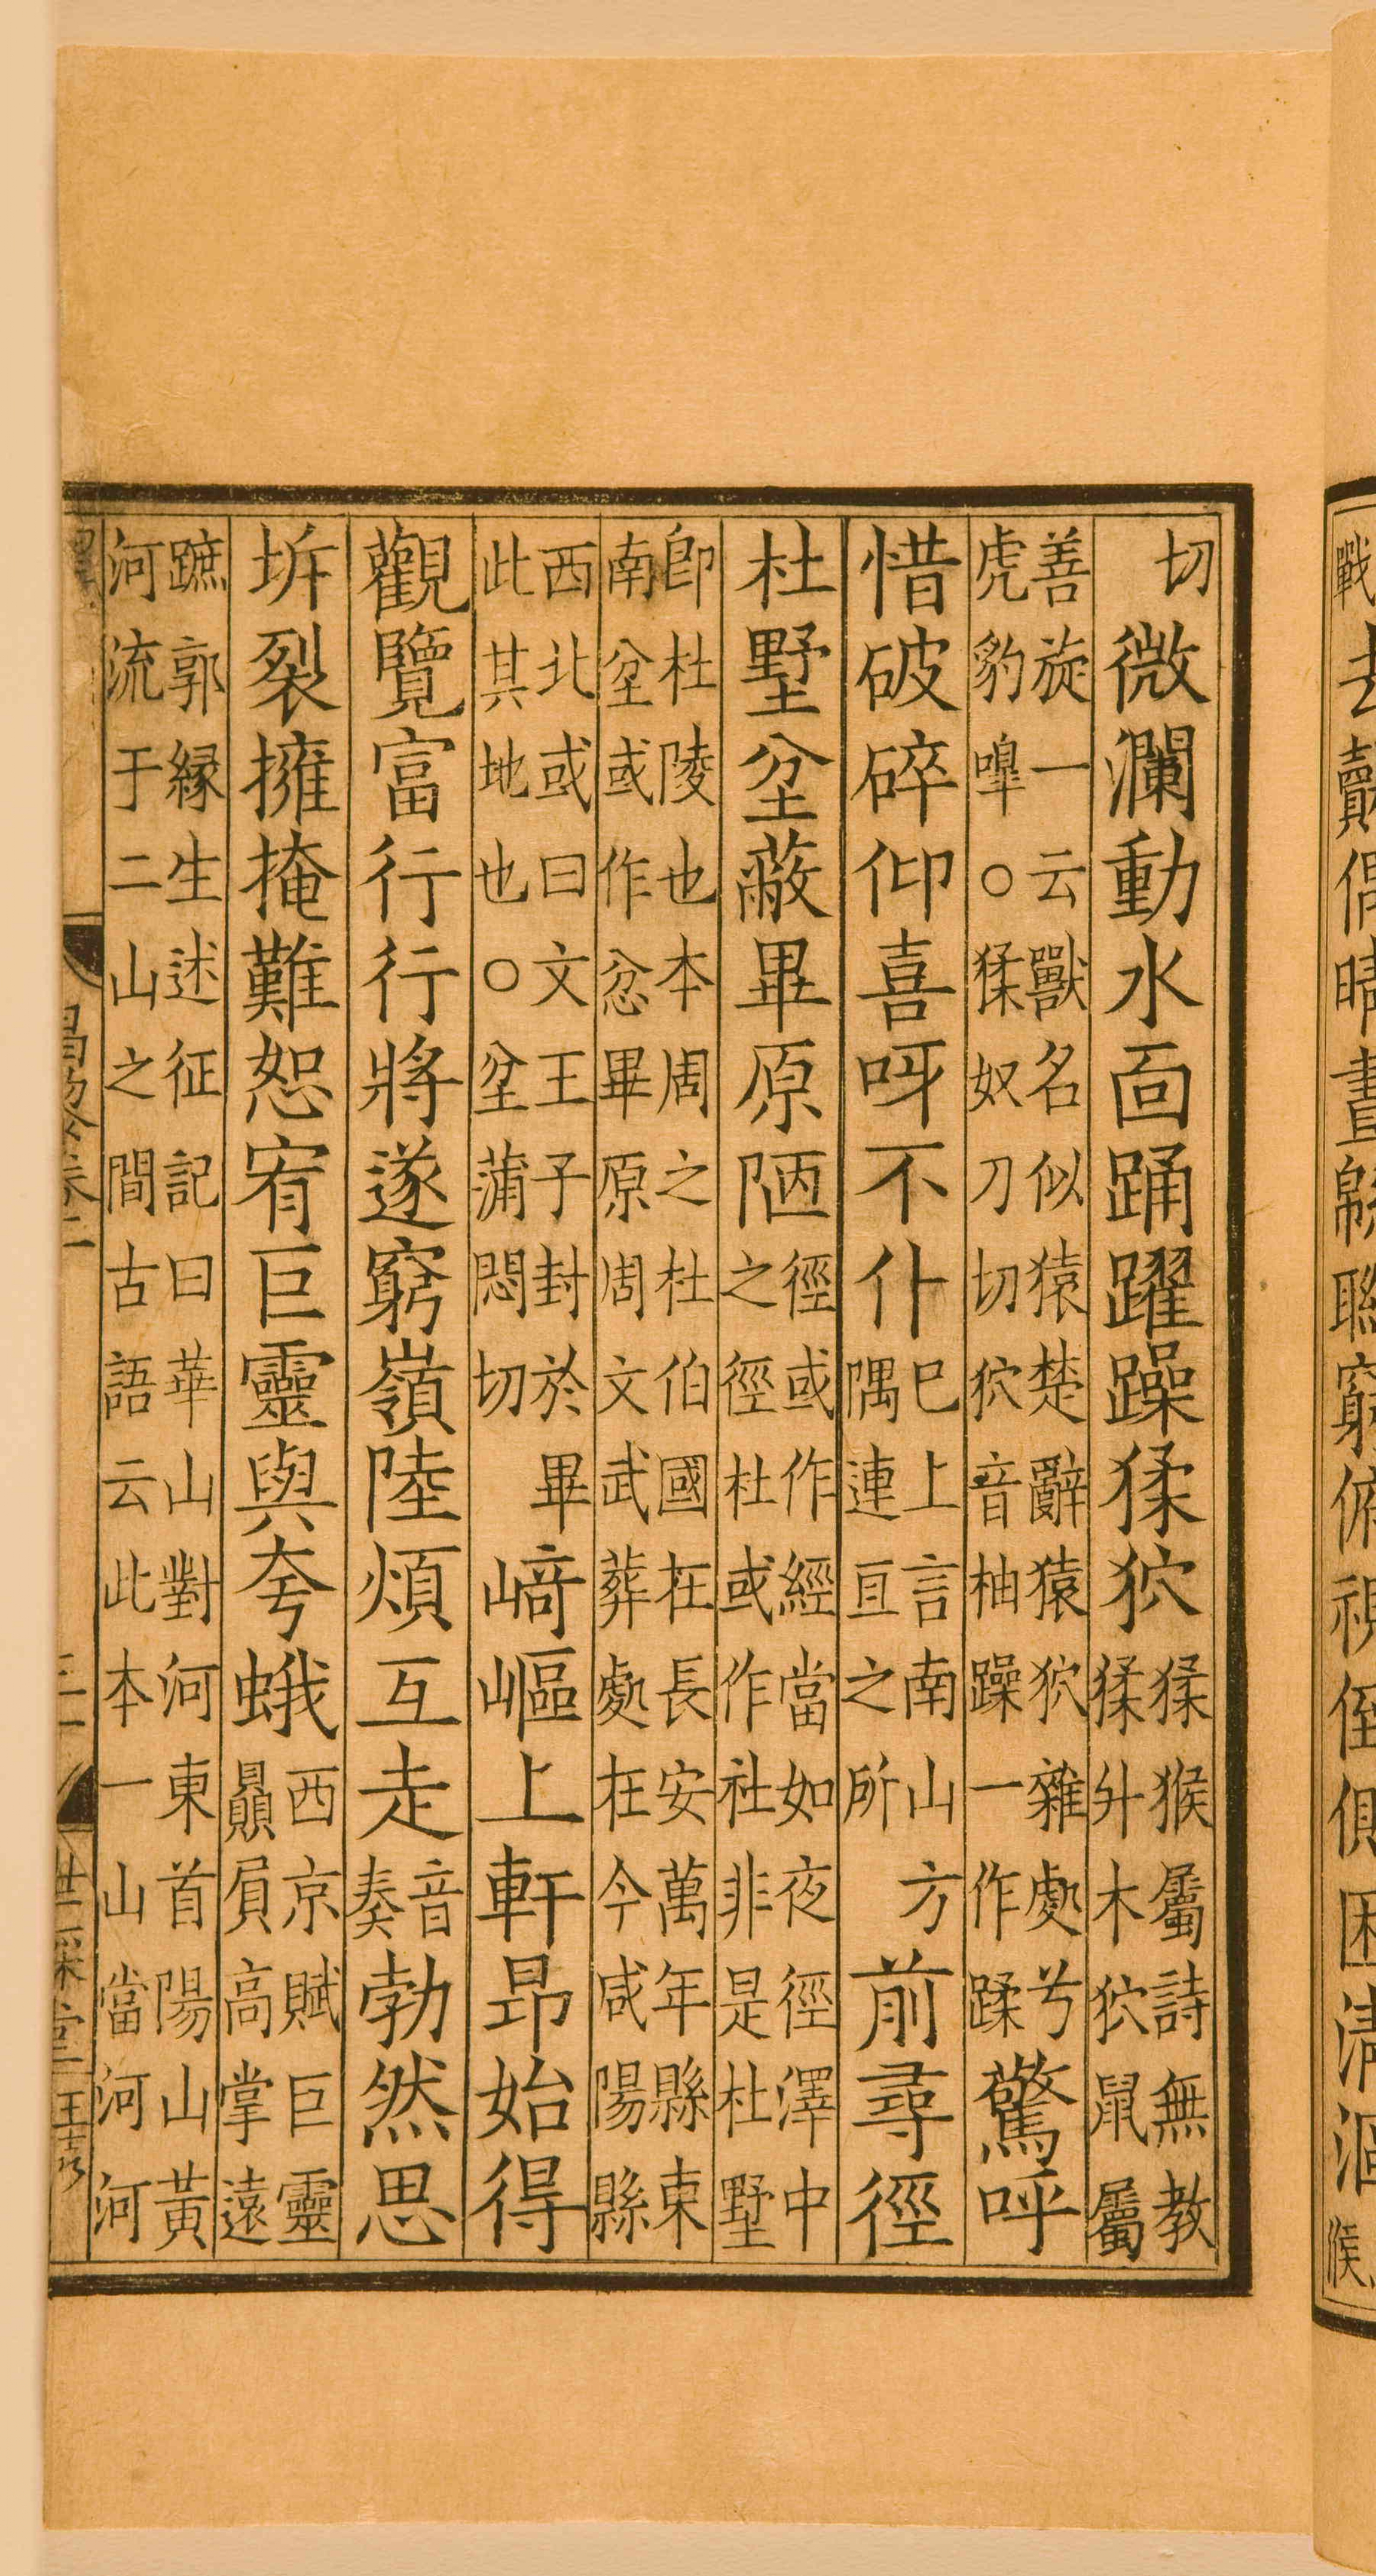 切微瀾動水面踊躍躁猱狖猱猴屬詩無教猱升木狖鼠屬
善旋一云獸名似猿楚辭猿狖雜處兮虎豹嘷○猱奴刀切狖音柚躁一作蹂驚呼
惜破碎仰喜呀不仆巳上言南山方隅連亘之所前尋徑
杜墅坌蔽畢原陋徑或作經當如夜徑澤中之徑杜或作社非是杜墅
卽杜陵也本周之杜伯國在長安萬年縣東南坌或作忿畢原周文武葬處在今咸陽縣
西北或曰文王子封於畢此其地也○坌蒲悶切崎嶇上軒昂始得
觀覽富行行將遂窮嶺陸煩互走音奏勃然思
坼裂擁掩難恕宥巨靈與夸蛾西京賦巨靈贔屓高掌遠
蹠郭緣生述征記曰華山對河東首陽山黃河流于二山之間古語云此本一山當河河
昌黎卷二
世綵堂
戰